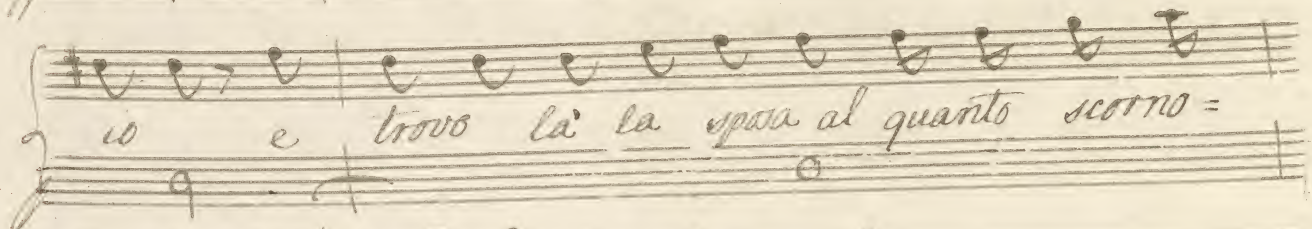 io e trovo là la sposa al quanto scorno=